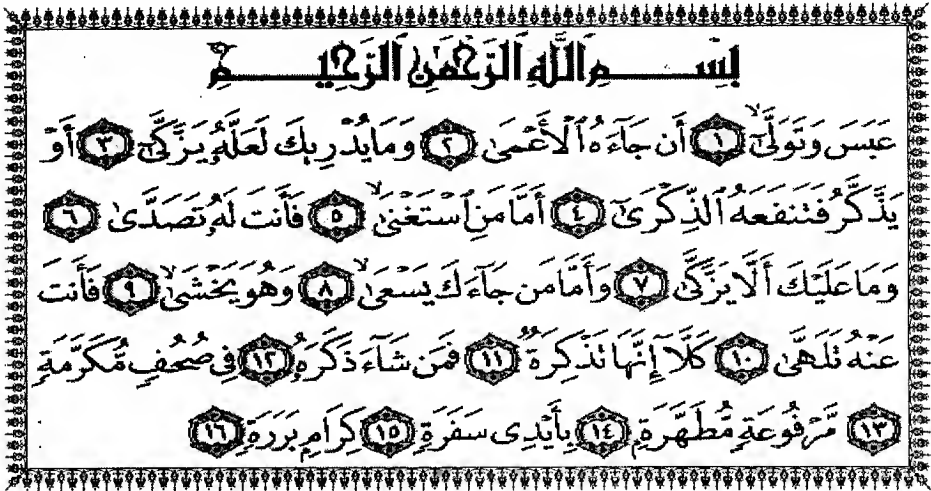 بِسْمِ ٱللَّهِ ٱلرَّحْمَٰنِ ٱلرَّحِيمِ
عَبَسَ وَتَوَلَّىٰٓ ۙ ١ أَن جَآءَهُ ٱلْأَعْمَىٰ ٢ وَمَا يُدْرِيكَ لَعَلَّهُۥ يَزَّكَّىٰٓ ٣ أَوْ
يَذَّكَّرُ فَتَنفَعَهُ ٱلذِّكْرَىٰٓ ٤ أَمَّا مَنِ ٱسْتَغْنَىٰ ۙ ٥ فَأَنتَ لَهُۥ تَصَدَّىٰ ٦
وَمَا عَلَيْكَ أَلَّا يَزَّكَّىٰ ٧ وَأَمَّا مَن جَآءَكَ يَسْعَىٰ ۙ ٨ وَهُوَ يَخْشَىٰ ۙ ٩ فَأَنتَ
عَنْهُ تَلَهَّىٰ ١٠ كَلَّآ إِنَّهَا تَذْكِرَةٌ ١١ فَمَن شَآءَ ذَكَرَهُۥ ١٢ فِى صُحُفٍ مُّكَرَّمَةٍ
١٣ مَّرْفُوعَةٍ مُّطَهَّرَةٍۭ ١٤ بِأَيْدِى سَفَرَةٍ ١٥ كِرَامٍۭ بَرَرَةٍ ١٦